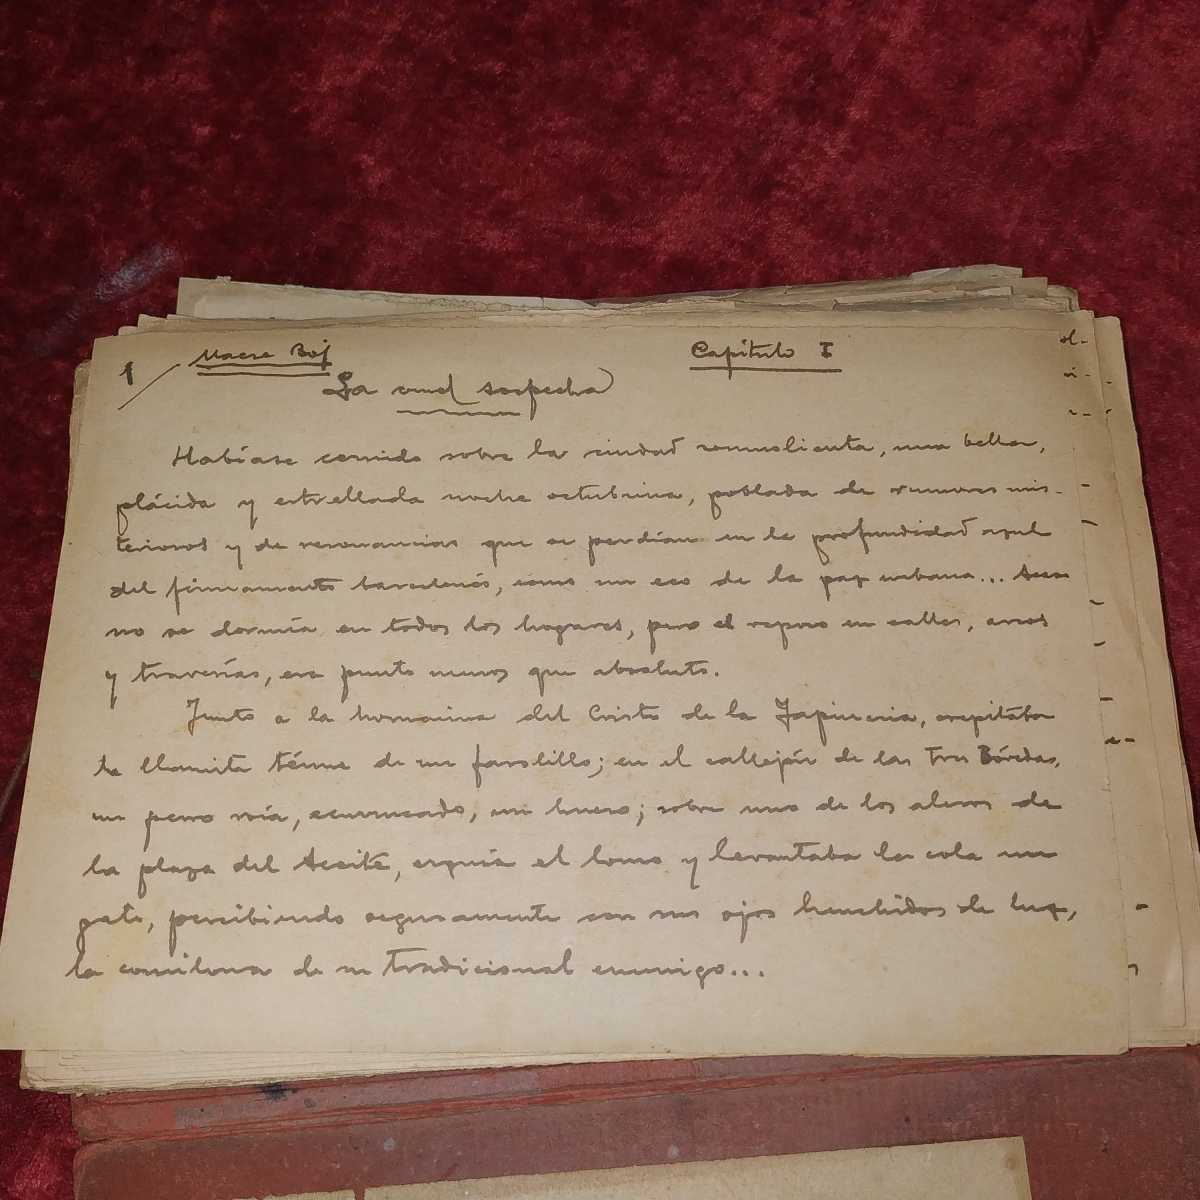 1 Maese Boj Capítulo I
La cruel sospecha
Habíase cernido sobre la ciudad somnolienta, una bella,
plácida y estrellada noche octubrina, poblada de rumores mis-
teriosos y de resonancias que se perdían en la profundidad azul
del firmamento barcelonés, como un eco de la paz urbana... Acaso
no se dormía en todos los hogares, pero el reposo en calles, arcos
y travesías, era punto menos que absoluto.
Junto a la hornacina del Cristo de la Tapinería, crepitaba
la llamita ténue de un farolillo; en el callejón de las Tres Bóvedas,
un perro roía, acurrucado, un hueso; sobre uno de los aleros de
la plaza del Aceite, erguía el lomo y levantaba la cola un
gato, percibiendo seguramente con sus ojos henchidos de luz,
la comilona de su tradicional enemigo...